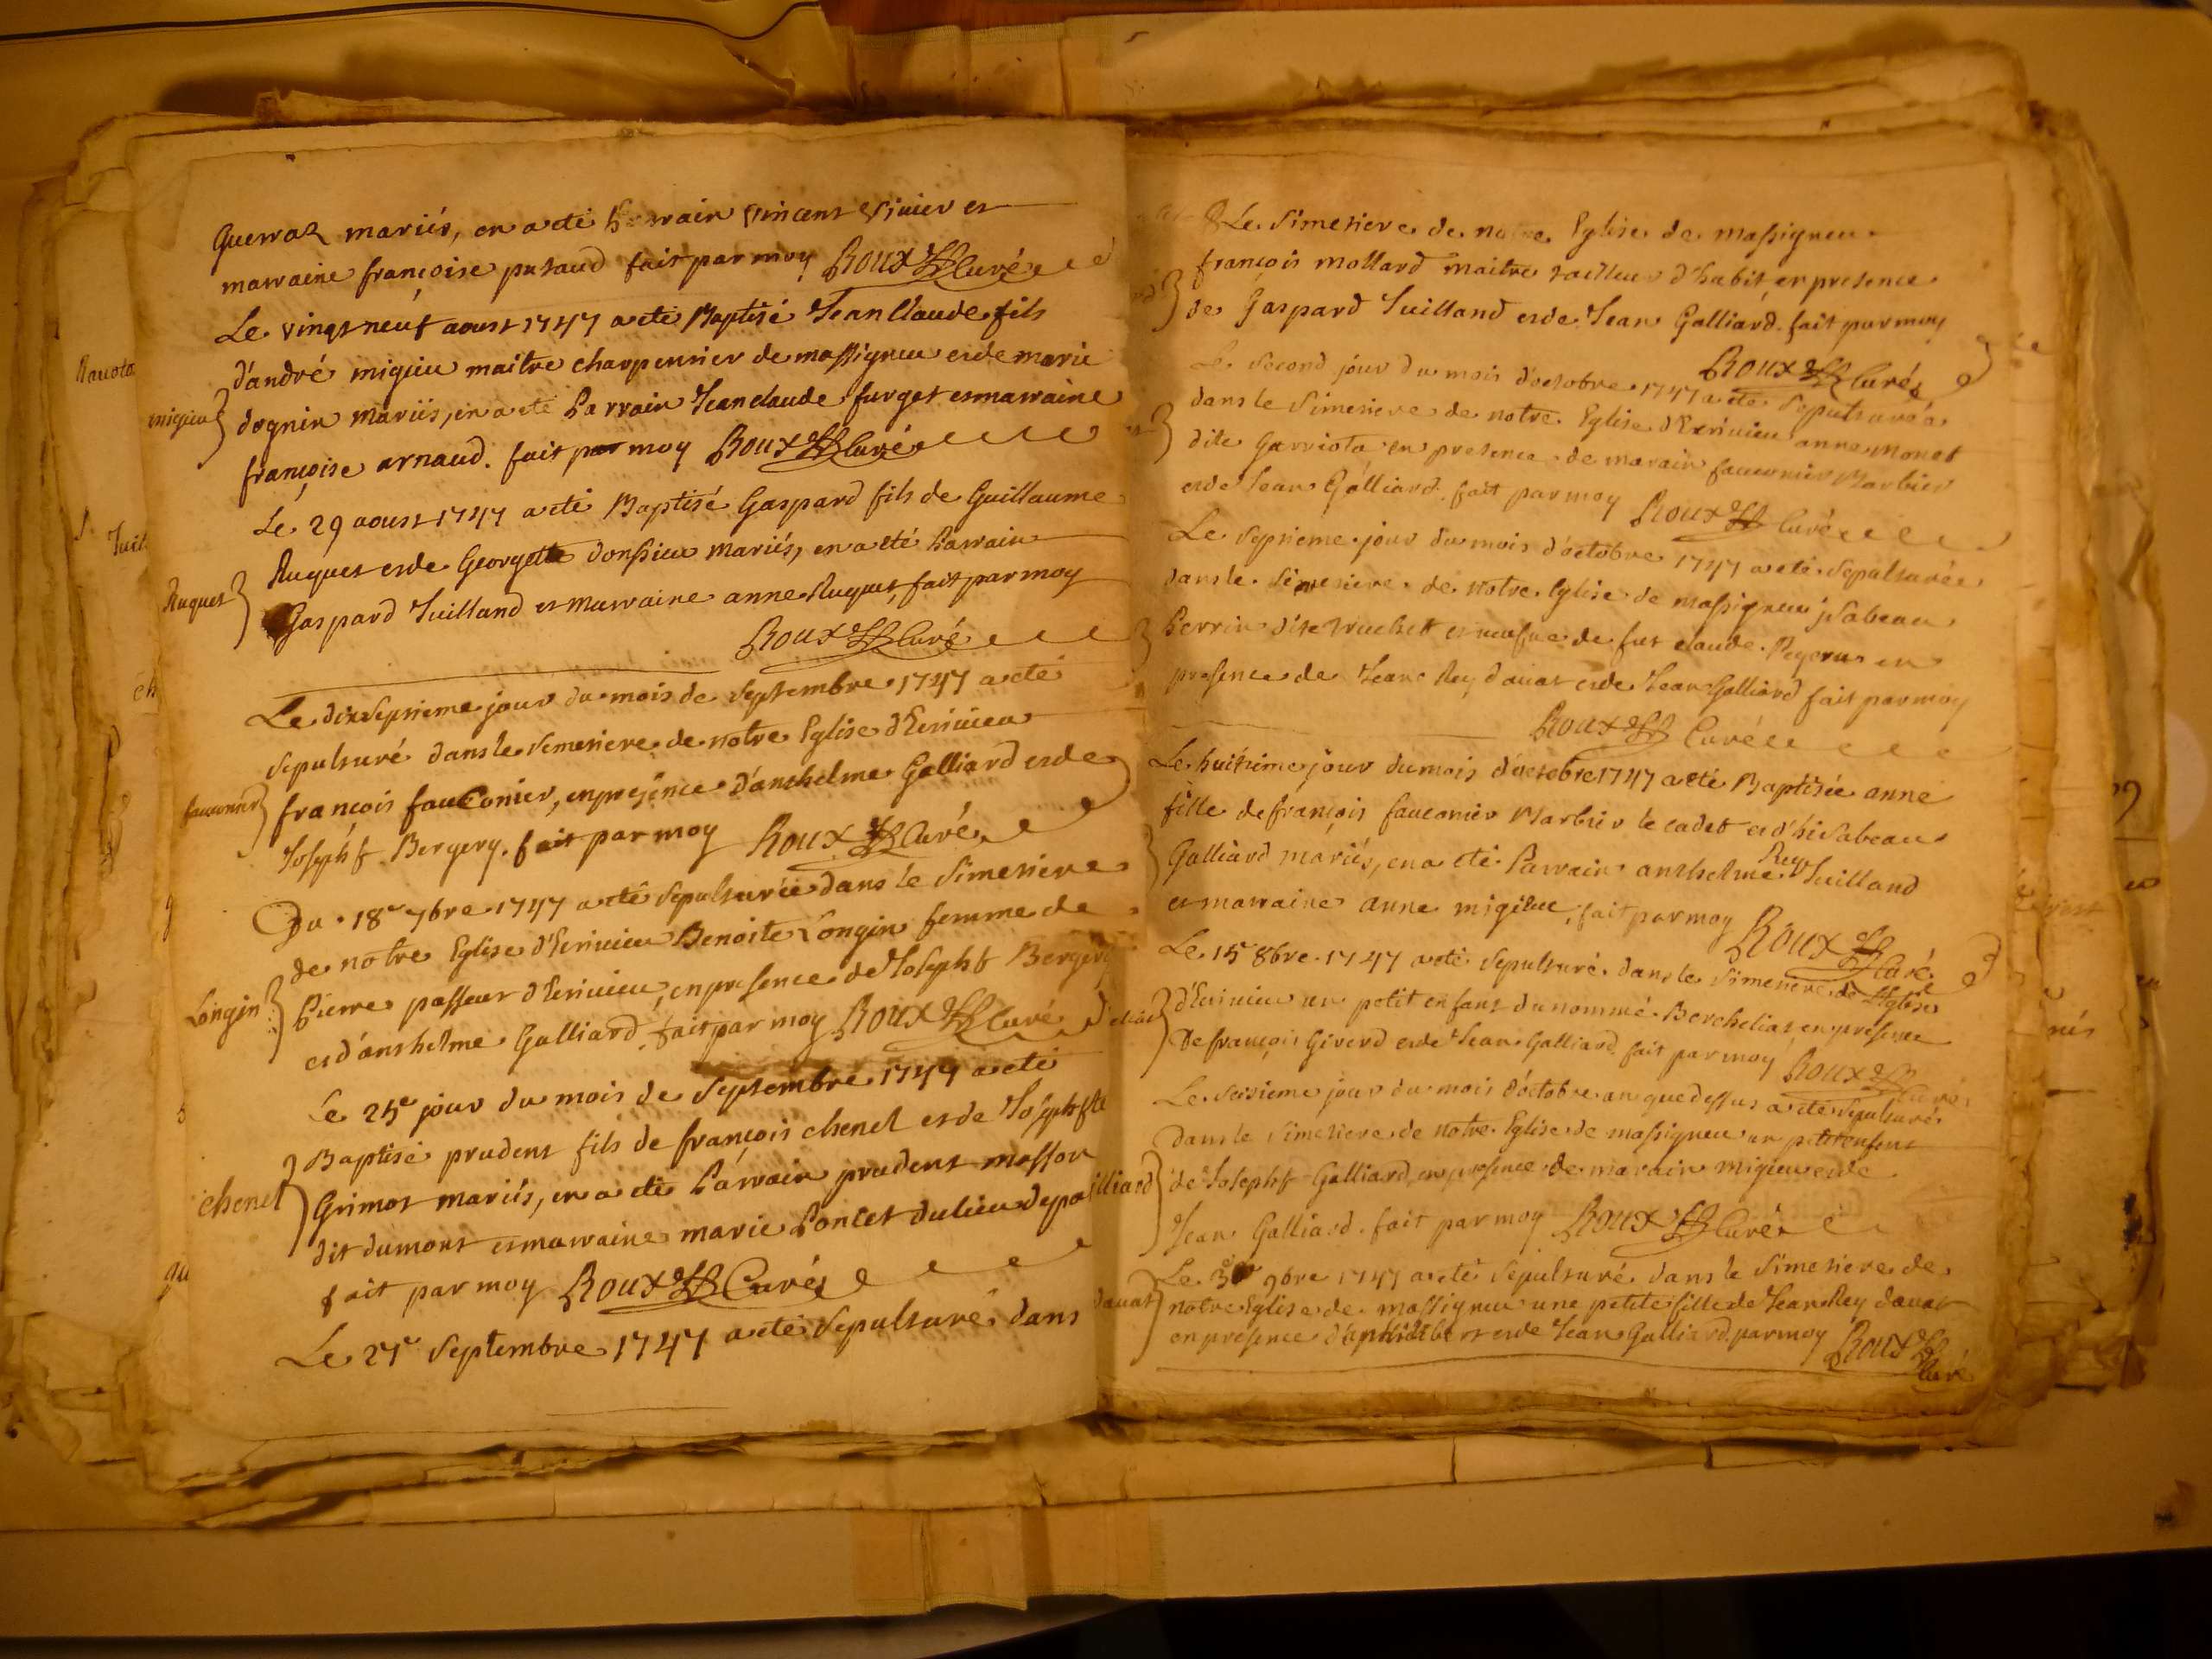 Guerraz mariés, en a eté Parrain vincens vivier et
marraine françoise putaud fait par moy Roux Curé
Le vingt neuf aoust 1747 a eté Baptisé Jean Claude fils
migieu d'andré migieu maitre charpentier de massigneu et de marie
dognin mariés, en a eté Parrain Jean claude furget et marraine
françoise arnaud. fait par moy Roux Curé
Le 29 aoust 1747 a eté Baptisé Gaspard fils de Guillaume
Ruquet Ruquet et de Georgette donssieu mariés, en a eté Parrain
Gaspard Juilland et marraine anne Ruquet, fait par moy
Roux Curé
Le dixseptieme jour du mois de septembre 1747 a eté
sepulturé dans le simetiere de notre Eglise d'Ecrivieu
fauconnier françois fauConier, en presence d'anthelme Galliard et de
Josepht Bergery. fait par moy Roux Curé
Du 18e 7bre 1747 a eté sepulturée dans le simetiere
de notre Eglise d'Ecrivieu Benoite Longin femme de
Longin Pierre passeur d'Ecrivieu, en presence de Josepht Bergery
et d'anthelme Galliard. fait par moy Roux Curé
Le 25e jour du mois de septembre 1747 a eté
Baptisé prudent fils de françois chenel et de Josephte
chenel Grimot mariés, en a eté Parrain prudent
dit dumont et marraine marie Poncet du lieu de
fait par moy Roux Curé
Le 27e septembre 1747 a eté sepulturé dans
Le simetiere de notre Eglise de massigneu
françois mollard maitre tailleur d'habit en presence
de Gaspard Juilland et de Jean Galliard. fait par moy
Roux Curé
Le second jour du mois d'octobre 1747 a eté sepulturéa
dans le simetiere de notre Eglise d'Ecrivieu anne monet
dite Garriota en presence de marain fauconier Marbier
et de Jean Galliard. fait par moy Roux Curé
Le septieme jour du mois d'octobre 1747 a eté sepulturée
dans le simetiere de notre Eglise de massigneu jsabeau
Perrin dite et veufve de fut claude en
presence de Jean Rey davat et de Jean Galliard fait par moy
Roux Curé
Le huitieme jour du mois d'octobre 1747 a eté Baptisée anne
fille de françois fauconier Marbier le cadet et d'hisabeau
Galliard mariés, en a eté Parrain anthelme Rey Juilland
et marraine anne migieu, fait par moy Roux Curé
Le 15e 8bre 1747 a eté sepulturé dans le simetiere de l'Eglise
d'Ecrivieu un petit enfant du nommé Berthelias, en presence
De françois Giverd et de Jean Galliard. fait par moy Roux Curé
Le seisieme jour du mois d'octobre an que dessus a eté sepulturé
dans le simetiere de notre Eglise de massigneu un petit enfant
de Josepht Galliard, en presence de marain migieu et de
Jean Galliard. fait par moy Roux Curé
Le 9bre 1747 a eté sepulturé dans le simetiere de
davat notre Eglise de massigneu une petite fille de Jean Rey davat
en presence et de Jean Galliard. par moy Roux
Curé